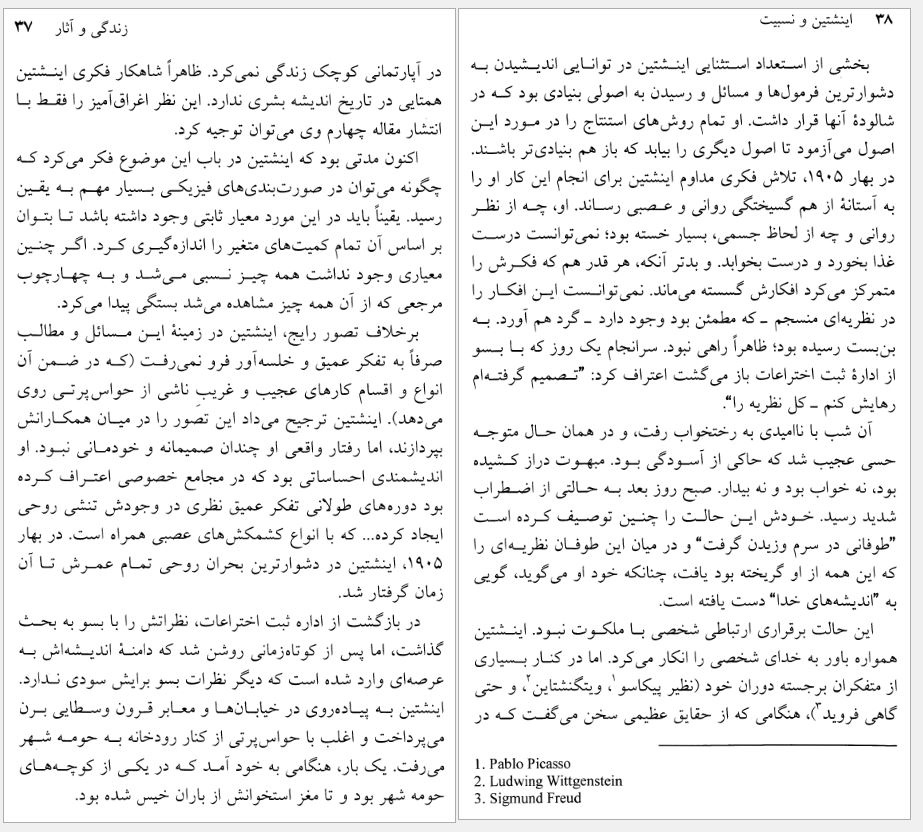 زندگی و آثار ۳۷
در آپارتمانی کوچک زندگی نمی‌کرد. ظاهراً شاهکار فکری اینشتین
همتایی در تاریخ اندیشه بشری ندارد. این نظر اغراق‌آمیز را فقط با
انتشار مقاله چهارم وی می‌توان توجیه کرد.
اکنون مدتی بود که اینشتین در باب این موضوع فکر می‌کرد که
چگونه می‌توان در صورت‌بندی‌های فیزیکی بسیار مهم به یقین
رسید. یقیناً باید در این مورد معیار ثابتی وجود داشته باشد تا بتوان
بر اساس آن تمام کمیت‌های متغیر را اندازه‌گیری کرد. اگر چنین
معیاری وجود نداشت همه چیز نسبی می‌شد و به چهارچوب
مرجعی که از آن همه چیز مشاهده می‌شد بستگی پیدا می‌کرد.
برخلاف تصور رایج، اینشتین در زمینهٔ این مسائل و مطالب
صرفاً به تفکر عمیق و خلسه‌آور فرو نمی‌رفت (که در ضمن آن
انواع و اقسام کارهای عجیب و غریبِ ناشی از حواس‌پرتی روی
می‌دهد). اینشتین ترجیح می‌داد این تصور را در میان همکارانش
بپردازند، اما رفتار واقعی او چندان صمیمانه و خودمانی نبود. او
اندیشمندی احساساتی بود که در مجامع خصوصی اعتراف کرده
بود دوره‌های طولانی تفکر عمیق نظری در وجودش تنشی روحی
ایجاد کرده... که با انواع کشمکش‌های عصبی همراه است. در بهار
۱۹۰۵، اینشتین در دشوارترین بحران روحی تمام عمرش تا آن
زمان گرفتار شد.
در بازگشت از اداره ثبت اختراعات، نظراتش را با بسو به بحث
گذاشت، اما پس از کوتاه‌زمانی روشن شد که دامنهٔ اندیشه‌اش به
عرصه‌ای وارد شده است که دیگر نظرات بسو برایش سودی ندارد.
اینشتین به پیاده‌روی در خیابان‌ها و معابر قرون وسطایی برن
می‌پرداخت و اغلب با حواس‌پرتی از کنار رودخانه به حومه شهر
می‌رفت. یک بار، هنگامی به خود آمد که در یکی از کوچه‌های
حومه شهر بود و تا مغز استخوانش از باران خیس شده بود.
۳۸ اینشتین و نسبیت
بخشی از استعداد استثنایی اینشتین در توانایی اندیشیدن به
دشوارترین فرمول‌ها و مسائل و رسیدن به اصولی بنیادی بود که در
شالودهٔ آنها قرار داشت. او تمام روش‌های استنتاج را در مورد این
اصول می‌آزمود تا اصول دیگری را بیابد که باز هم بنیادی‌تر باشند.
در بهار ۱۹۰۵، تلاش فکری مداوم اینشتین برای انجام این کار او را
به آستانهٔ از هم گسیختگی روانی و عصبی رساند. او، چه از نظر
روانی و چه از لحاظ جسمی، بسیار خسته بود؛ نمی‌توانست درست
غذا بخورد و درست بخوابد. و بدتر آنکه، هر قدر هم که فکرش را
متمرکز می‌کرد افکارش گسسته می‌ماند. نمی‌توانست این افکار را
در نظریه‌ای منسجم ـ که مطمئن بود وجود دارد ـ گرد هم آورد. به
بن‌بست رسیده بود؛ ظاهراً راهی نبود. سرانجام یک روز که با بسو
از ادارهٔ ثبت اختراعات باز می‌گشت اعتراف کرد: ”تصمیم گرفته‌ام
رهایش کنم ـ کل نظریه را“.
آن شب با ناامیدی به رختخواب رفت، و در همان حال متوجه
حسی عجیب شد که حاکی از آسودگی بود. مبهوت دراز کشیده
بود، نه خواب بود و نه بیدار. صبح روز بعد به حالتی از اضطراب
شدید رسید. خودش این حالت را چنین توصیف کرده است
”طوفانی در سرم وزیدن گرفت“ و در میان این طوفان نظریه‌ای را
که این همه از او گریخته بود یافت، چنانکه خود او می‌گوید، گویی
به ”اندیشه‌های خدا“ دست یافته است.
این حالت برقراری ارتباطی شخصی با ملکوت نبود. اینشتین
همواره باور به خدای شخصی را انکار می‌کرد. اما در کنار بسیاری
از متفکران برجسته دوران خود (نظیر پیکاسو۱، ویتگنشتاین۲، و حتی
گاهی فروید۳)، هنگامی که از حقایق عظیمی سخن می‌گفت که در
1. Pablo Picasso
2. Ludwing Wittgenstein
3. Sigmund Freud